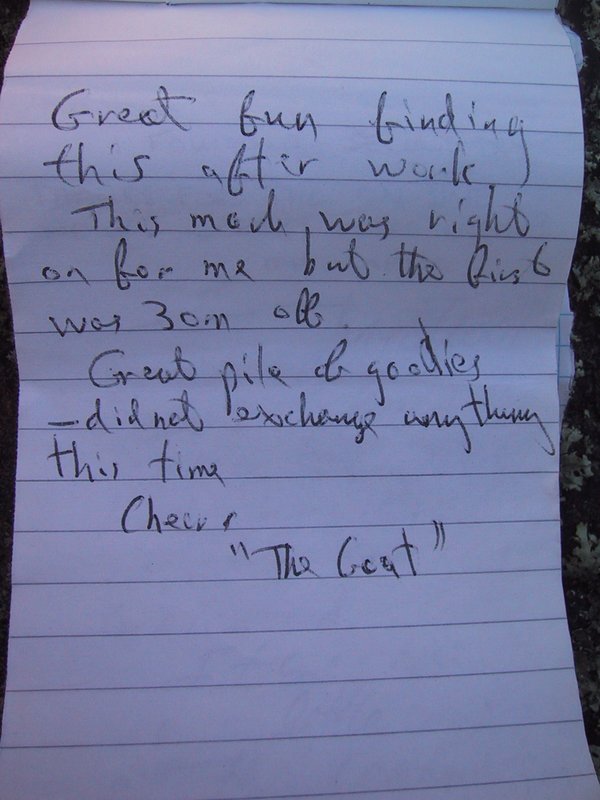 Great fun finding
this after work
This mark was right
on for me but the first
was 30m off.
Great pile of goodies
- did not exchange anything
this time
Cheers
"The Goat"